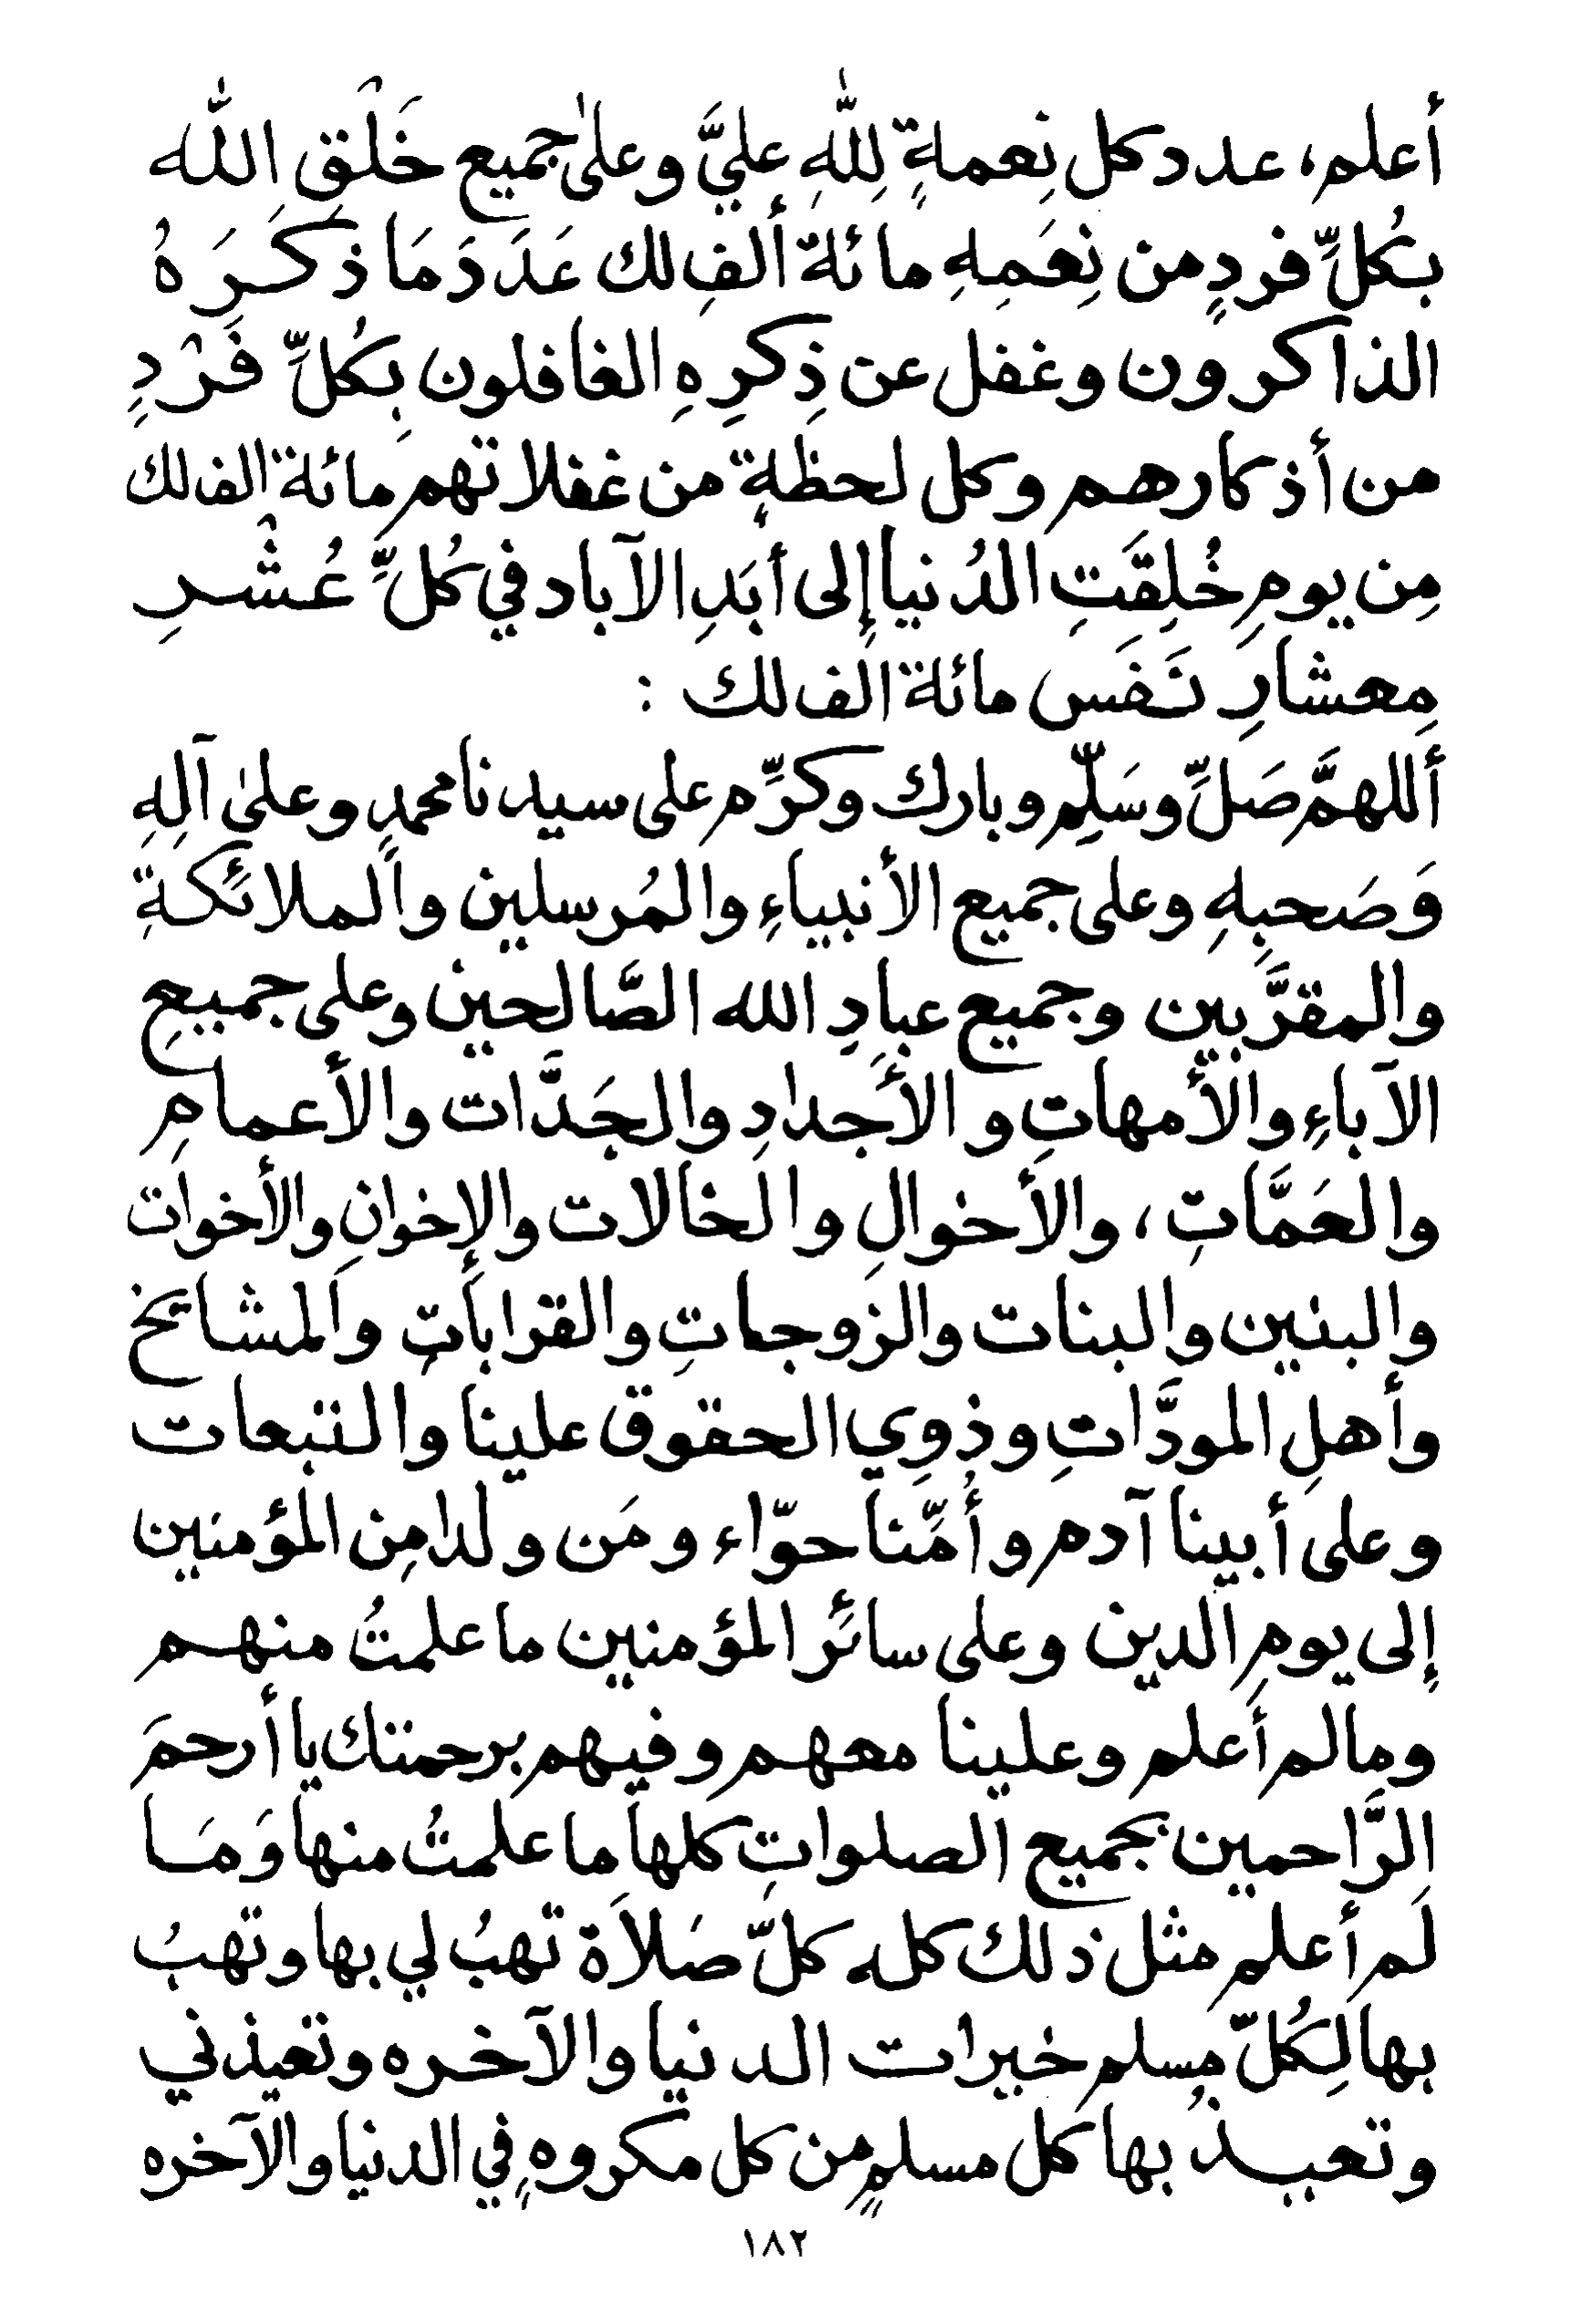 أعلم، عدد كل نِعمةٍ لِلّٰهِ عليَّ وعلىٰ جَميع خَلْقِ اللّٰه
بكُلِّ فردٍ من نِعَمِهِ مائة ألفِ لك عَدَدَ مَا ذكَرَهُ
الذاكرون وغفل عن ذِكرِهِ الغافلون بِكُلِّ فَرْدٍ
من أذكارهم وكل لحظةٍ من غفلاتهم مائة الف لك
مِن يومِ خُلِقَتِ الدُنيا إلى أبَدِ الآباد في كُلِّ عُشْرِ
مِعشارِ نَفَس مائة الف لك :
أللهمَّ صَلِّ وسَلِّم وبارك وكرِّم على سيدنا محمدٍ وعلىٰ آلِهِ
وَصَحبِهِ وعلى جميع الأنبياءِ والمُرسلين والملائكةِ
والمقرَّبين وجميع عبادِ الله الصَّالحين وعلى جميعِ
الآباءِ والأمهاتِ و الأجدادِ والجَدَّات والأعمامِ
والعَمَّاتِ، والأخوالِ والخالات والإخوانِ والأخوات
والبنين والبنات والزوجاتِ والقراباتِ والمشائخ
وأهلِ المودَّاتِ وذوِي الحقوق علينا والتبعات
وعلى أبينا آدم وأُمِّنا حوّاء ومَن ولدا مِن المؤمنين
إلى يومِ الدين وعلى سائر المؤمنين ما علمتُ منهم
ومالم أعلم وعلينا معهم وفيهم برحمتك يا أرحمَ
الرَّاحمين بجميع الصلواتِ كلها ما علمتُ منها وَمَا
لَم أعلم مثل ذلك كله كلّ صَلاَة تهبُ لي بها وتهبُ
بها لِكُلّ مسلم خيرات الدنيا والآخره وتعيذني
وتعيذُ بها كل مسلمٍ من كل مكروهٍ في الدنيا والآخره
١٨٢